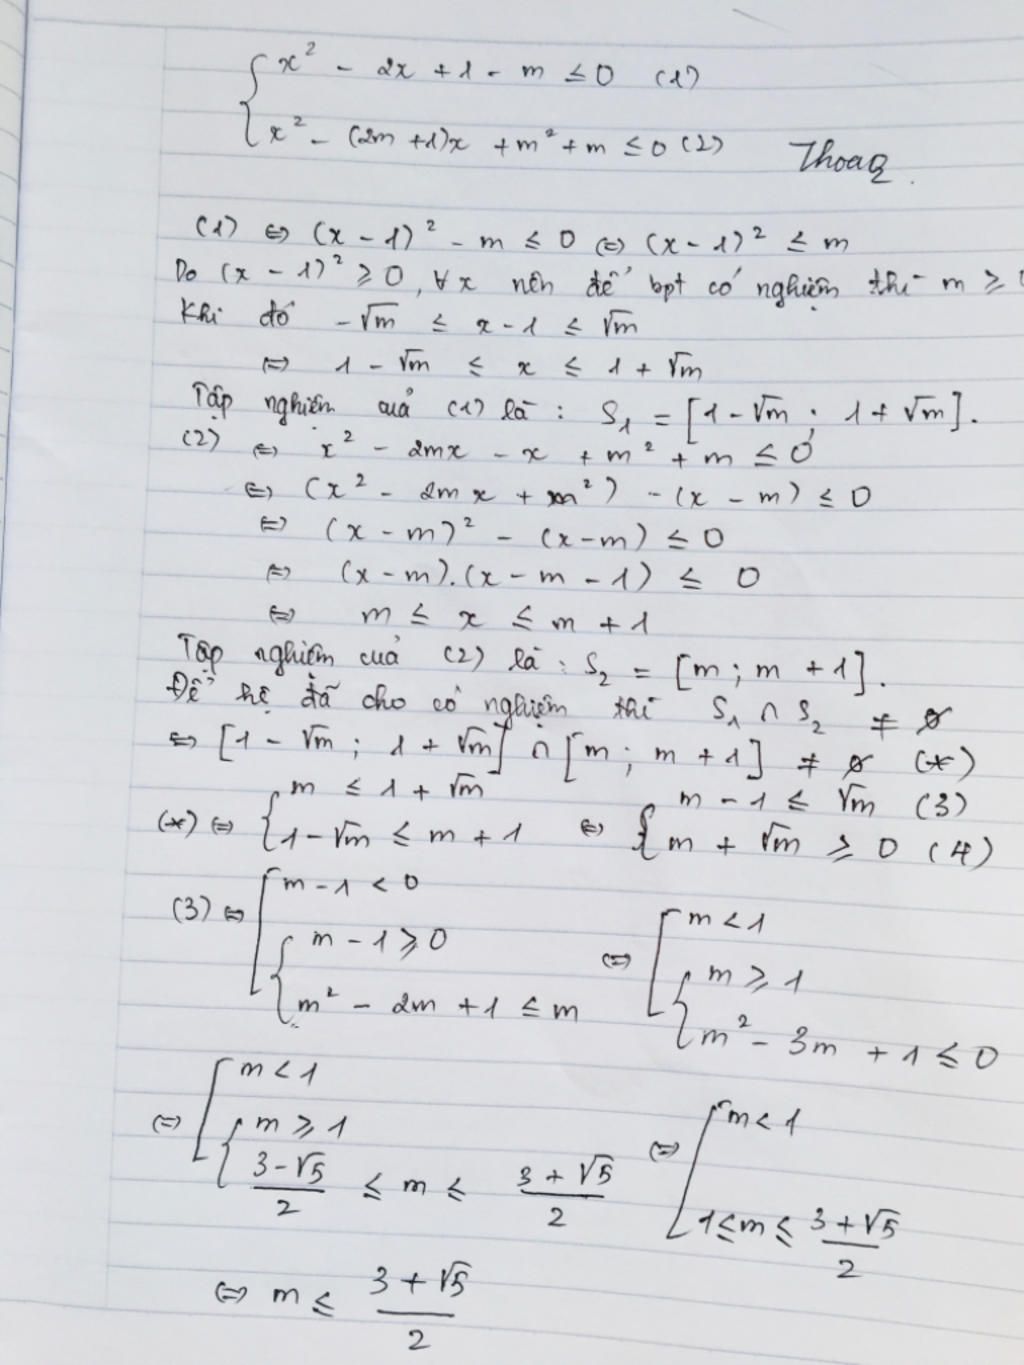 { x² - 2x + 1 - m ≤ 0 (1)
x² - (2m + 1)x + m² + m ≤ 0 (2)
ThoaQ.
(1) ⇔ (x - 1)² - m ≤ 0 ⇔ (x - 1)² ≤ m
Do (x - 1)² ≥ 0, ∀x nên để bpt có nghiệm thì m ≥ 0
Khi đó -√m ≤ x - 1 ≤ √m
⇔ 1 - √m ≤ x ≤ 1 + √m
Tập nghiệm cuả (1) là : S₁ = [1 - √m ; 1 + √m].
(2) ⇔ x² - 2mx - x + m² + m ≤ 0
⇔ (x² - 2mx + m²) - (x - m) ≤ 0
⇔ (x - m)² - (x - m) ≤ 0
⇔ (x - m).(x - m - 1) ≤ 0
⇔ m ≤ x ≤ m + 1
Tập nghiệm cuả (2) là : S₂ = [m ; m + 1].
Để hệ đã cho có nghiệm thì S₁ ∩ S₂ ≠ ∅
⇔ [1 - √m ; 1 + √m] ∩ [m ; m + 1] ≠ ∅ (*)
(*) ⇔ { m ≤ 1 + √m
1 - √m ≤ m + 1
⇔ { m - 1 ≤ √m (3)
m + √m ≥ 0 (4)
(3) ⇔ [ m - 1 < 0
{ m - 1 ≥ 0
m² - 2m + 1 ≤ m
⇔ [ m < 1
{ m ≥ 1
m² - 3m + 1 ≤ 0
⇔ [ m < 1
{ m ≥ 1
(3 - √5)/2 ≤ m ≤ (3 + √5)/2
⇔ [ m < 1
1 ≤ m ≤ (3 + √5)/2
⇔ m ≤ (3 + √5)/2